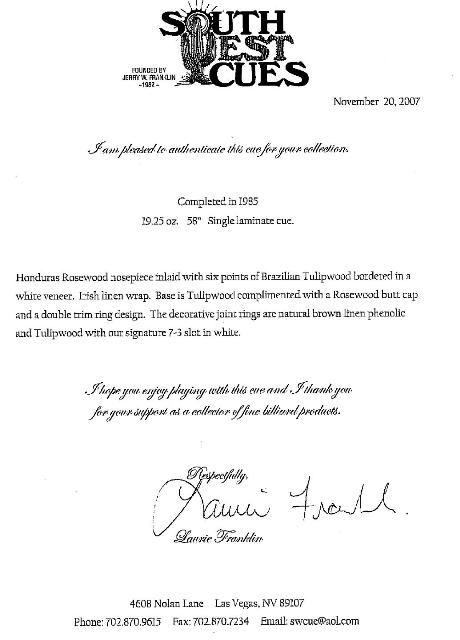 SOUTH
WEST
CUES
FOUNDED BY
JERRY W. FRANKLIN
-1982-
November 20, 2007
I am pleased to authenticate this cue for your collection.
Completed in 1985
19.25 oz. 58" Single laminate cue.
Honduras Rosewood nosepiece inlaid with six points of Brazilian Tulipwood bordered in a
white veneer. Irish linen wrap. Base is Tulipwood complimented with a Rosewood butt cap
and a double trim ring design. The decorative joint rings are natural brown linen phenolic
and Tulipwood with our signature 7-3 slot in white.
I hope you enjoy playing with this cue and I thank you
for your support as a collector of fine billiard products.
Respectfully,
Laurie Franklin
Laurie Franklin
4608 Nolan Lane Las Vegas, NV 89107
Phone: 702.870.9615 Fax: 702.870.7234 Email: swcue@aol.com